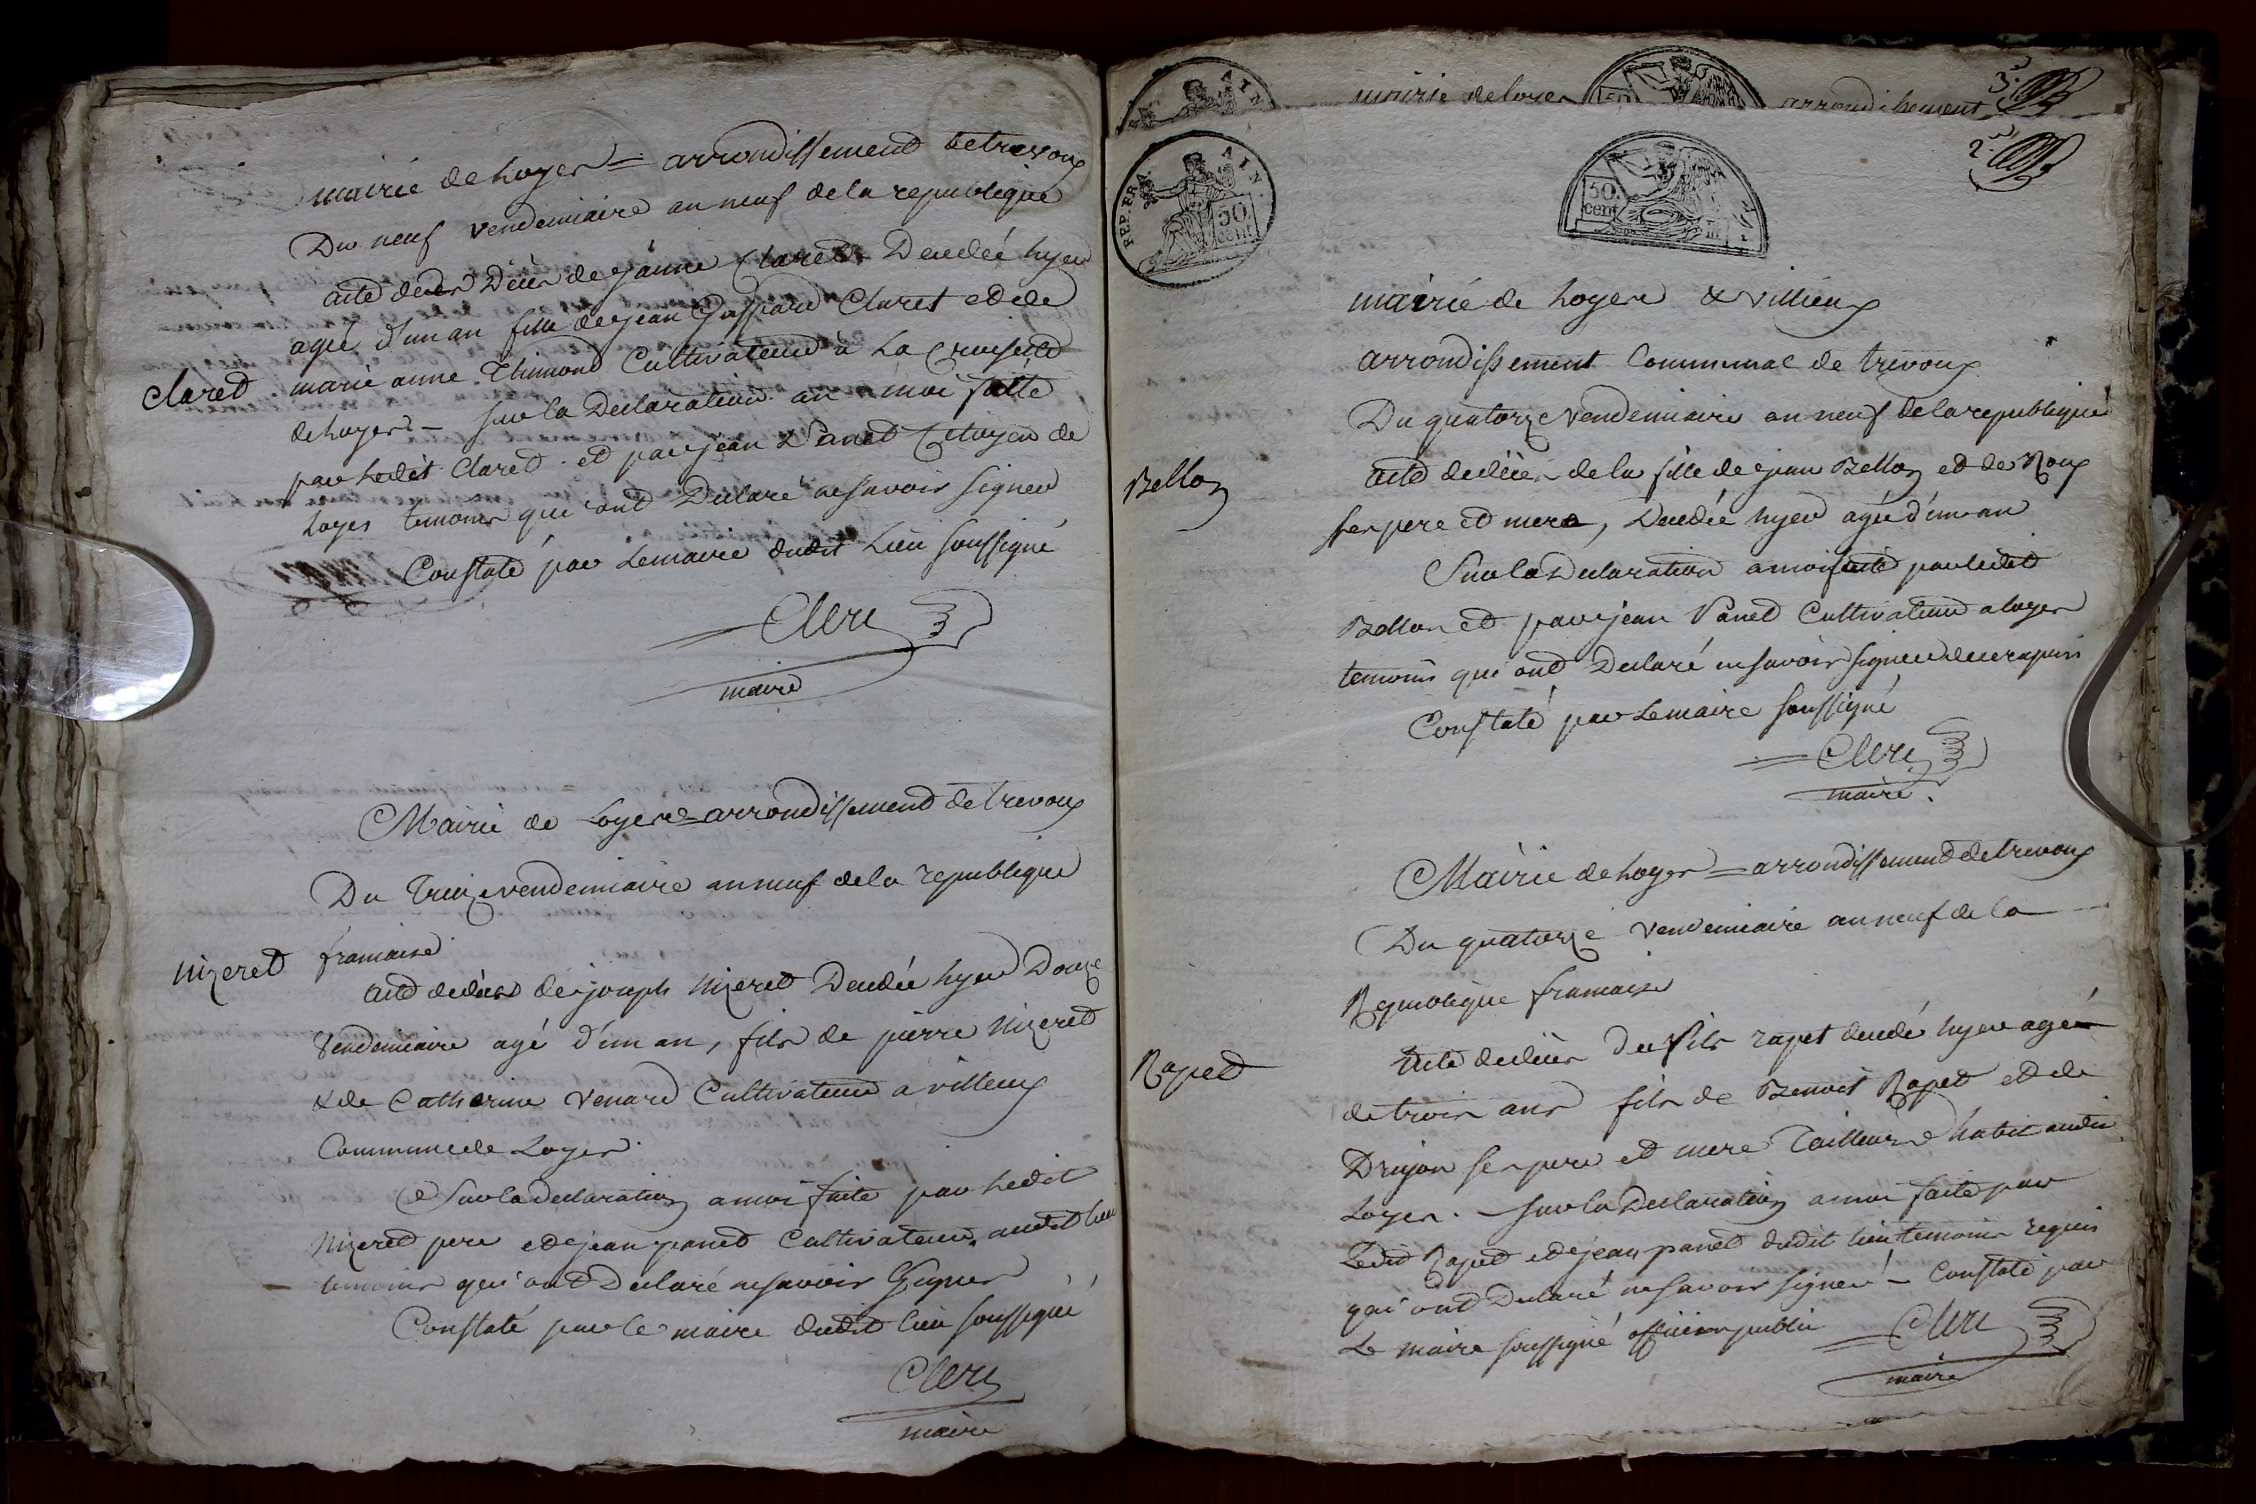 mairie de Loyes = arrondissement de trevoux
Du neuf vendemiaire an neuf de la republique
acte de deces de jeanne Claret Decedée hyer
agée d'un an fille de jean Gaspard Claret et de
Claret
marie anne Thimond Cultivateur à La
de Loyes - sur la Declaration a moi faite
par Ledit Claret et par jean Panet Citoyen de
Loyes temoins qui ont Declaré ne savoir signer
Constaté par Le maire dudit Lieu soussigné
Clerc
maire
Mairie de Loyes = arrondissement de trevoux
Du Treize vendemiaire an neuf de la republique
francaise
Nizeret
acte de deces de joseph Nizeret Decedée hyer Douze
Vendemiaire agé d'un an, fils de pierre Nizeret
& de Catherine Venard Cultivateur a villieux
Commune de Loyes
Sur la declaration a moi faite par Ledit
Nizeret pere et de jean panet Cultivateur audit lieu
temoins qui ont Declaré ne savoir Signer
Constaté par le maire dudit lieu soussigné
Clerc
maire
AIN
mairie de Loyes arrondissement
3.e
2.e
REP. FRA. AIN.
50 cent
50. cent
mairie de Loyes & villieux
arrondissement Communal de trevoux
Du quatorze vendemiaire an neuf de la republique
Bellon
acte de deces de la fille de jean Bellon et de Roux
ses pere et mere, Decedée hyer agée d'un an
Sur la Declaration a moi faite par ledit
Bellon et par jean Panet Cultivateur a loyes
temoins qui ont Declaré ne savoir signer de ce requis
Constaté par Le maire soussigné
Clerc
maire.
Mairie de Loyes = arrondissement de trevoux
Du quatorze vendemiaire an neuf de la
Republique francaise
Rapet
acte de deces du fils rapet decedé hyer agé
de trois ans fils de Benoit Rapet et de
Drujon ses pere et mere Tailleur d'habit audit
Loyes. - sur la Declaration a moi faite par
Ledit Rapet et de jean panet dudit lieu temoins requis
qui ont Declaré ne savoir signer - Constaté par
Le maire soussigné officier public
Clerc
maire